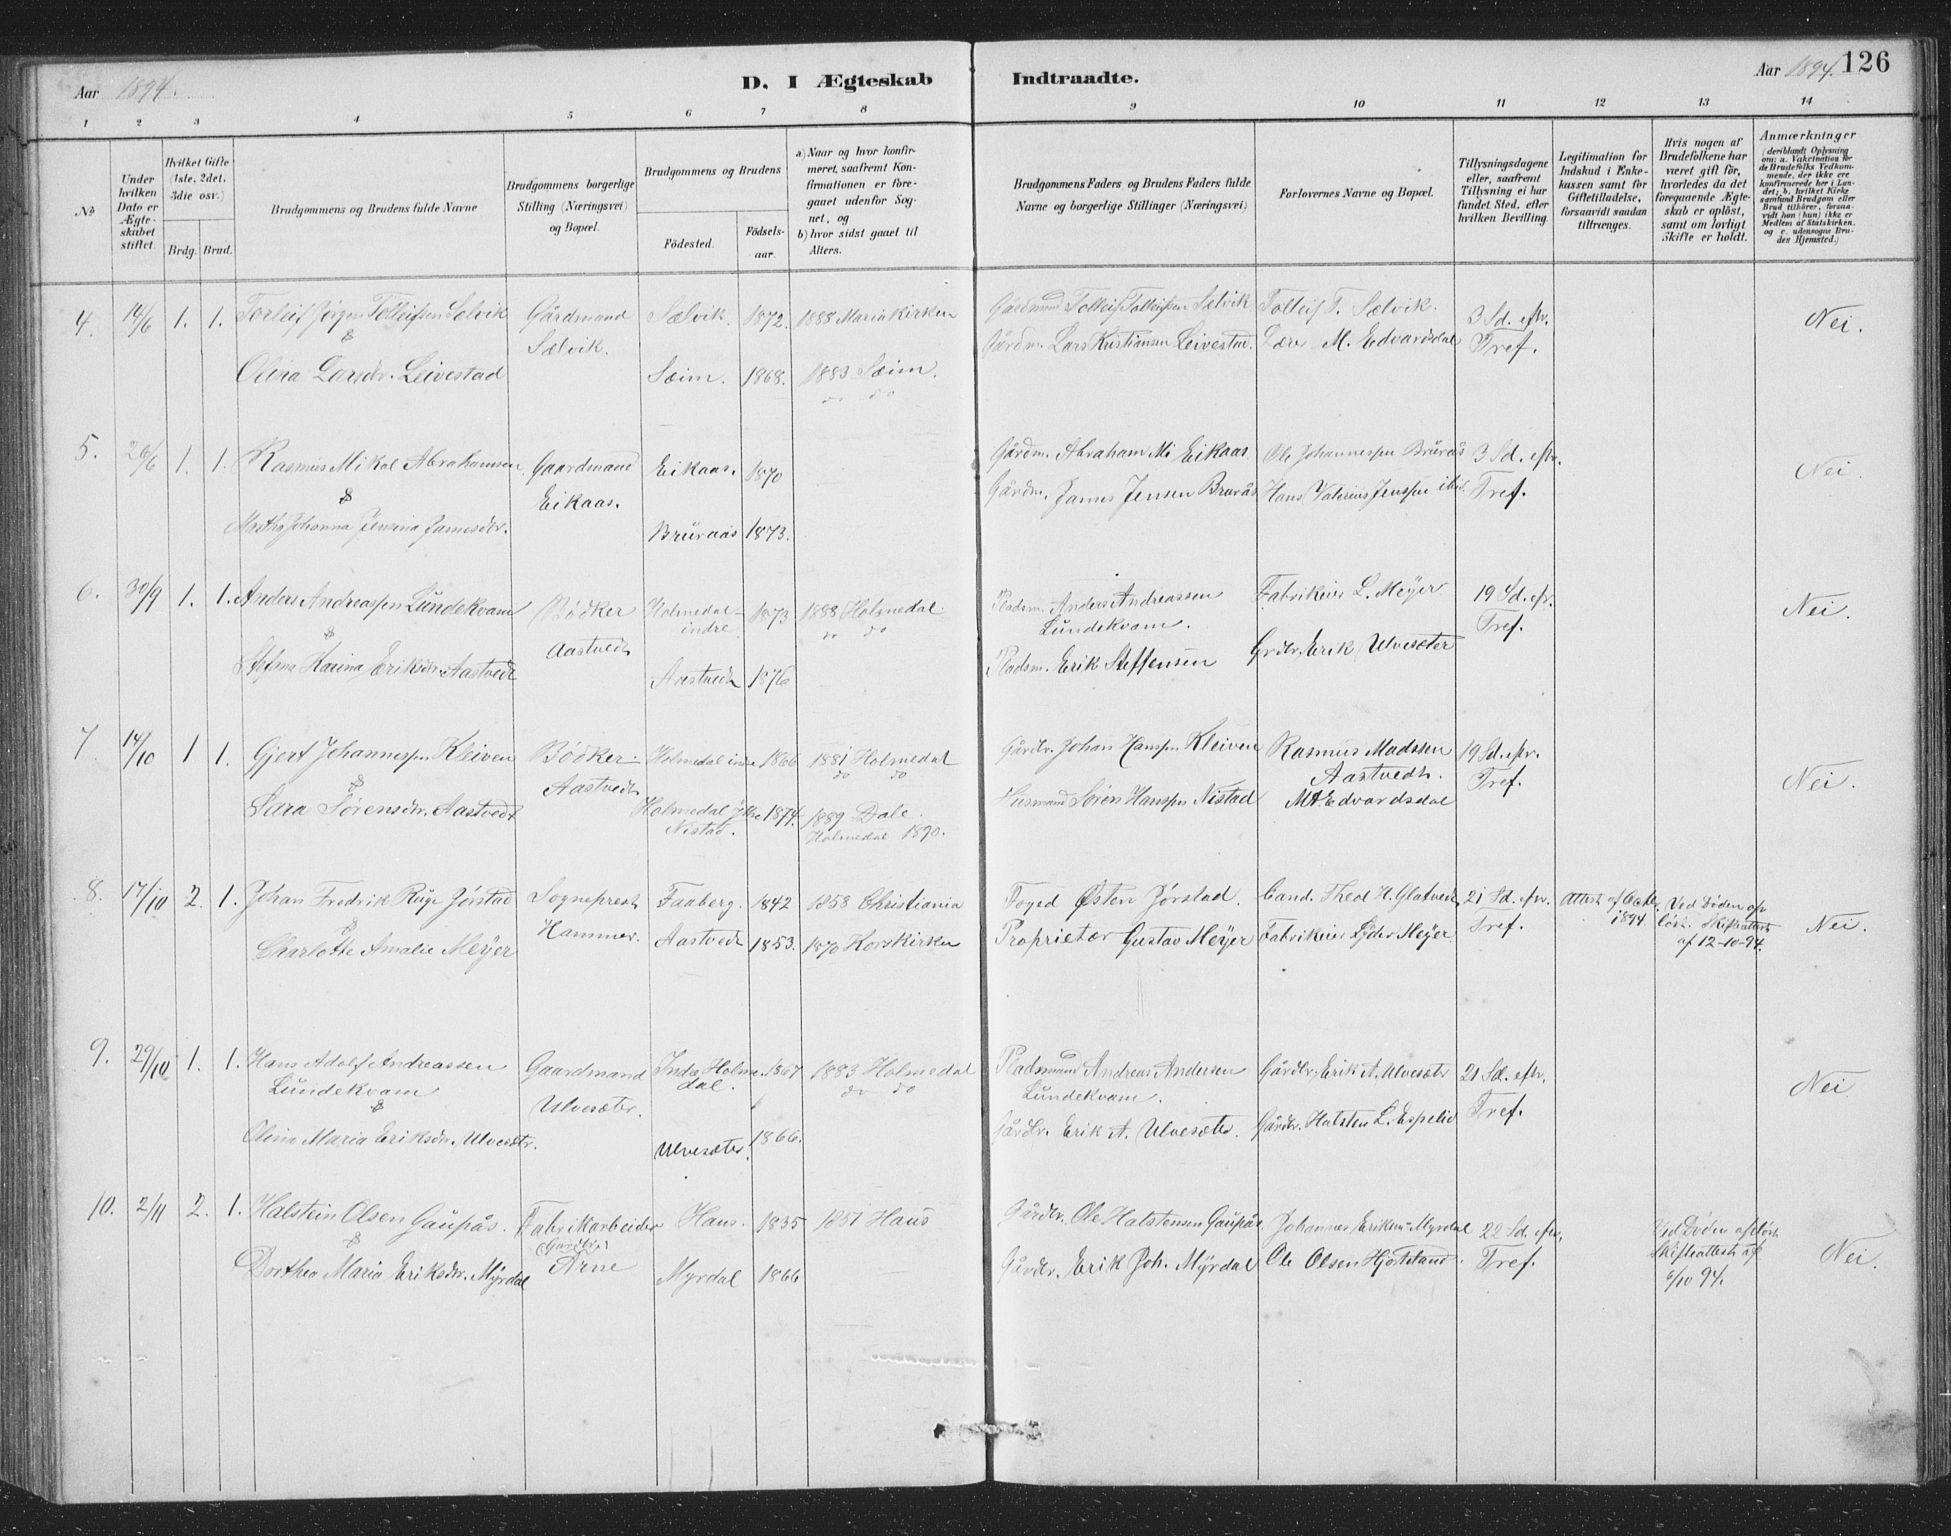 Aar 1894.
D. I Ægteskab Indtraadte.
Aar 1894. 126
1 2 3 4 5 6 7 8 9 10 11 12 13 14
№
Under hvilken Dato er Ægteskabet stiftet.
Hvilket Gifte (1ste, 2det, 3die osv.)
Brdg. Brud.
Brudgommens og Brudens fulde Navne
Brudgommens borgerlige Stilling (Næringsvei) og Bopæl.
Brudgommens og Brudens
Födested. Födselsaar.
a) Naar og hvor konfirmeret, saafremt Konfirmationen er foregaaet udenfor Sognet, og
b) hvor sidst gaaet til Alters.
Brudgommens Faders og Brudens Faders fulde Navne og borgerlige Stillinger (Næringsvei)
Forlovernes Navne og Bopæl.
Tillysningsdagene eller, saafremt Tillysning ei har fundet Sted, efter hvilken Bevilling.
Legitimation for Indskud i Enkekassen samt for Giftetilladelse, forsaavidt saadan tiltrænges.
Hvis nogen af Brudefolkene har været gift för, hvorledes da det foregaaende Ægteskab er oplöst, samt om lovligt Skifte er holdt.
Anmærkninger (deriblandt Oplysning om: a. Vakcination for de Brudefolks Vedkommende, der ikke ere konfirmerede her i Landet; b. hvilket Kirkesamfund Brudgom eller Brud tilhörer, forsaavidt han (hun) ikke er Medlem af Statskirken, og c. udensogns Brudes Hjemsted.)
4. 14/6 1. 1. Torleif Jörgen Tolleifsen Sølvik Gårdmand Sælvik. 1872. 1888 Mariakirken Gårdmand Tolleif Tolleifsen Sælvik Tolleif T. Sælvik. 3 Sd. eftr. Nei.
& Sælvik. Gårdm. Lars Kristiansen Leivestad. Lærer M. Edvardsdal Tref.
Olina Larsdr. Leivestad Sæim. 1868. 1883 Sæim.
do do
5. 26/6 1. 1. Rasmus Mikal Abrahamsen Gaardmand Eikaas. 1870 Gårdm. Abraham Mi Eikaas Ole Johannessen Brürås 3 Sd. eftr. Nei.
& Eikaas. Gårdm. James Jensen Brurås Hans Valerius Jensen ibid. Tref.
Martha Johanna Jensina Jamesdr. Brüraas 1873.
6. 30/9 1. 1. Anders Andreassen Lundekvam Bödker Holmedal indre 1873 1888 Holmedal. Pladsm. Anders Andreassen Fabrikeier L. Meyer 19 Sd. eftr. Nei.
& Aastvedt do do Lundekvam. Tref.
Karina Eriksdr. Aastvedt Aastvedt 1876 Pladsm. Erik Steffensen Grdbr. Erik Ulvesæter
7 14/10 1 1. Gjert Johannessen Kleiven Bödker Holmedal indre 1866 1881 Holmedal Gårdbr. Johan Hanssen Kleiven Rasmus Madssen 19 Sd. eftr. Nei.
& Aastvedt do do Aastvedt. Tref.
Sara Sörensdr. Aastvedt Holmedal Ytre 1874. 1889 Dale. Husmand Sören Hanssen Nistad M. Edvardsdal
Nistad. Holmedal 1890.
8. 17/10 2. 1. Johan Fredrik Ruge Jörstad Sogneprest Faaberg. 1842 1858 Christiania Foged Østen Jörstad. Cand. Theol H. Glatvedt 21 Sd. eftr. Attest af Octbr. 1894 Ved Döden opløst. Skifteattest af 12-10-94. Nei.
& Hammer. Tref.
Charlotte Amalie Meyer Aastvedt 1853. 1870 Korskirken Proprietær Gustav Meyer Fabrikeier Lyder Meyer
9. 29/10 1. 1. Hans Adolf Andreassen Gaardmand Indre Holmedal. 1867 1883 Holmedal Pladsmand Andreas Andersen Gårdbr. Erik A. Ulvesæter 21 Sd. eftr. Nei
Lundekvam Ulvesæter. do do Lundekvam. Tref.
&
Olina Maria Eriksdr. Ulvesætr. Ulvesæter. 1866. Gårdbr. Erik A. Ulvesæter. Gårdbr. Halsten L. Espelid
10. 2/11 2. 1. Halstein Olsen Gaupås. Fabrikarbeider Haus. 1835 1851 Haus Gårdbr. Ole Halstensen Gaupås Johannes Eriksen Myrdal 22 Sd. eftr. Ved Döden opløst Skifteattest af 6/10 94. Nei.
& (Gardbr.) Arne
Dorthea Maria Eriksdr. Myrdal Myrdal 1866 Gårdbr. Erik Joh. Myrdal Ole Olsen Hjortland. Tref.